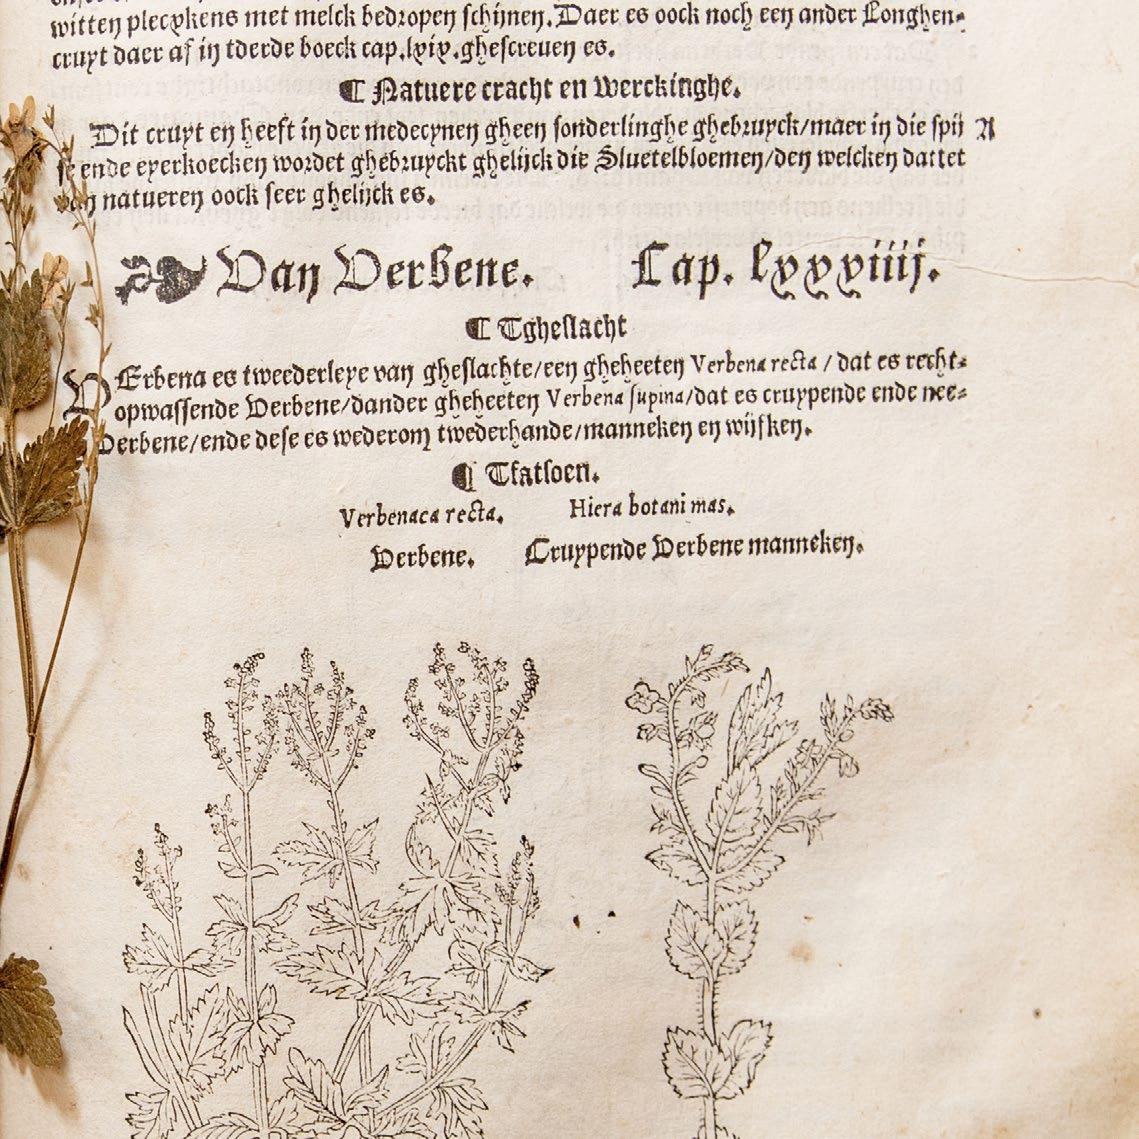 witten plecxkens met melck bedropen schijnen. Daer es oock noch een ander Longhen-
cruyt daer af in tderde boeck cap.lxix.ghescreuen es.
¶ Natuere cracht en Werckinghe.
Dit cruyt en heeft in der medecynen gheen sonderlinghe ghebruyck/maer in die spij A
se ende eyerkoecken wordet ghebruyckt ghelijck die Sluetelbloemen/den welcken dattet
van natueren oock seer ghelijck es.
Van Verbene. Cap. lxxxiiij.
¶ Tgheslacht
VErbena es tweederleye van gheslachte/een gheheeten Verbena recta / dat es recht-
opwassende Verbene/dander gheheeten Verbena supina/dat es cruypende ende nee-
Verbene/ende dese es wederom twederhande/manneken en wijfken.
¶ Tfatsoen.
Verbenaca recta. Hiera botani mas.
Verbene. Cruypende Verbene manneken.